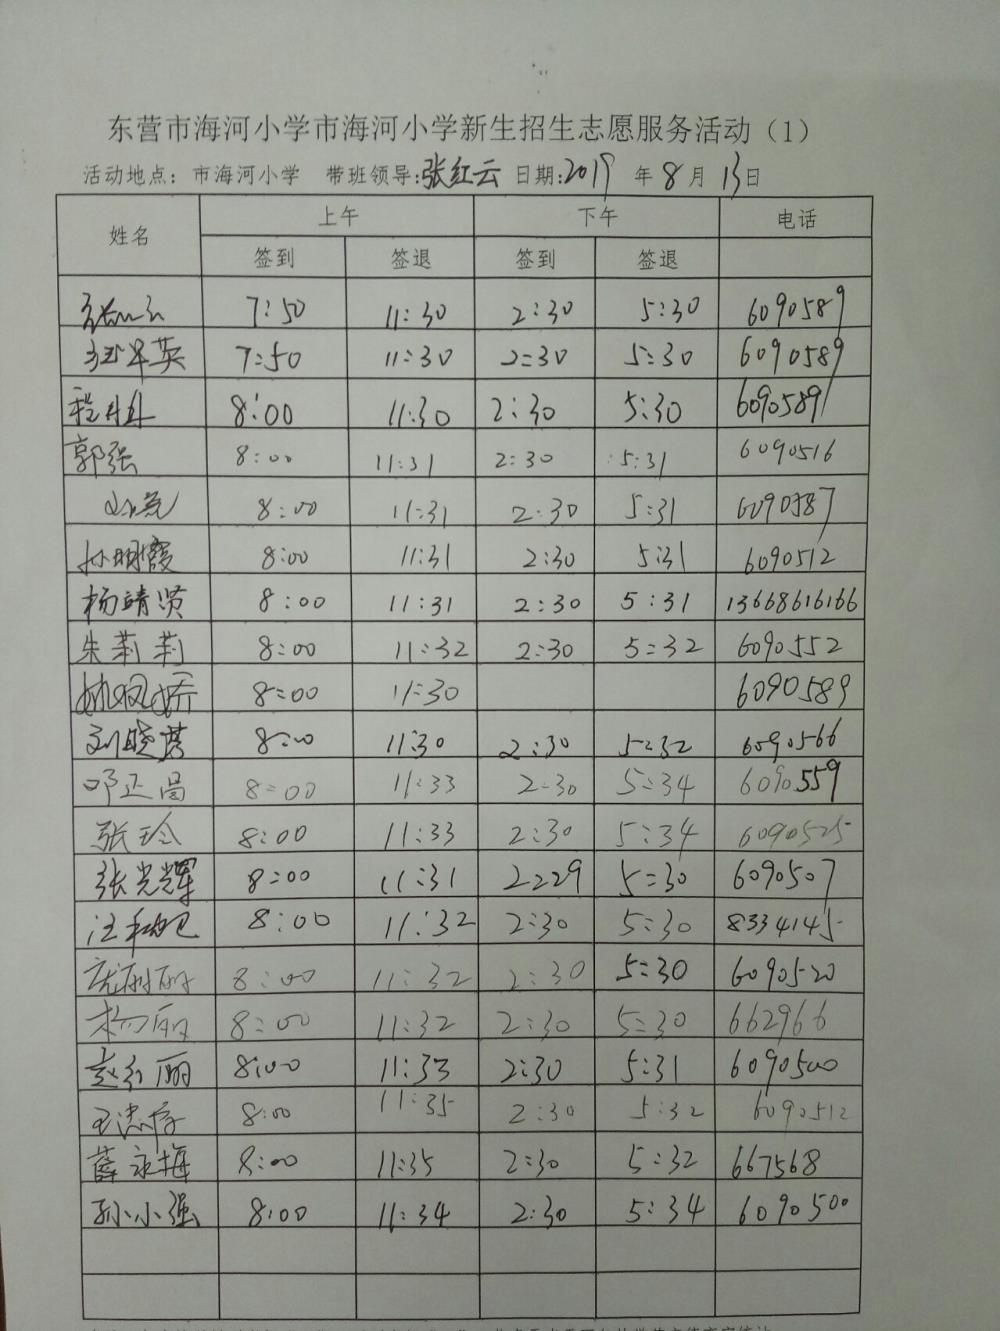 东营市海河小学市海河小学新生招生志愿服务活动（1）
活动地点：市海河小学 带班领导:张红云 日期:2019 年 8 月 13 日
姓名 上午 下午 电话
签到 签退 签到 签退
7:50 11:30 2:30 5:30 6090589
7:50 11:30 2:30 5:30 6090589
8:00 11:30 2:30 5:30 6090589
郭强 8:00 11:31 2:30 5:31 6090516
8:00 11:31 2:30 5:31 6090587
孙明霞 8:00 11:31 2:30 5:31 6090512
杨靖贤 8:00 11:31 2:30 5:31 13668616166
朱莉莉 8:00 11:32 2:30 5:32 6090552
姚凤娇 8:00 11:30 6090589
8:00 11:30 2:30 5:32 6090566
邓正昌 8:00 11:33 2:30 5:34 6090559
张玲 8:00 11:33 2:30 5:34 6090525
张光辉 8:00 11:31 2229 5:30 6090507
8:00 11:32 2:30 5:30 8334145
8:00 11:32 2:30 5:30 6090520
杨丽 8:00 11:32 2:30 5:30 662966
赵红丽 8:00 11:33 2:30 5:31 6090500
8:00 11:35 2:30 5:32 6090512
薛永梅 8:00 11:35 2:30 5:32 667568
孙小强 8:00 11:34 2:30 5:34 6090500